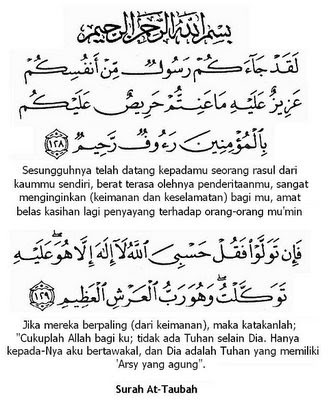 بِسْمِ اللَّهِ الرَّحْمَٰنِ الرَّحِيمِ
لَقَدْ جَاءَكُمْ رَسُولٌ مِّنْ أَنفُسِكُمْ
عَزِيزٌ عَلَيْهِ مَا عَنِتُّمْ حَرِيصٌ عَلَيْكُم
بِالْمُؤْمِنِينَ رَءُوفٌ رَّحِيمٌ ١٢٨
Sesungguhnya telah datang kepadamu seorang rasul dari
kaummu sendiri, berat terasa olehnya penderitaanmu, sangat
menginginkan (keimanan dan keselamatan) bagi mu, amat
belas kasihan lagi penyayang terhadap orang-orang mu'min
فَإِن تَوَلَّوْا فَقُلْ حَسْبِيَ اللَّهُ لَا إِلَٰهَ إِلَّا هُوَ ۖ عَلَيْهِ
تَوَكَّلْتُ ۖ وَهُوَ رَبُّ الْعَرْشِ الْعَظِيمِ ١٢٩
Jika mereka berpaling (dari keimanan), maka katakanlah;
"Cukuplah Allah bagi ku; tidak ada Tuhan selain Dia. Hanya
kepada-Nya aku bertawakal, dan Dia adalah Tuhan yang memiliki
'Arsy yang agung".
Surah At-Taubah